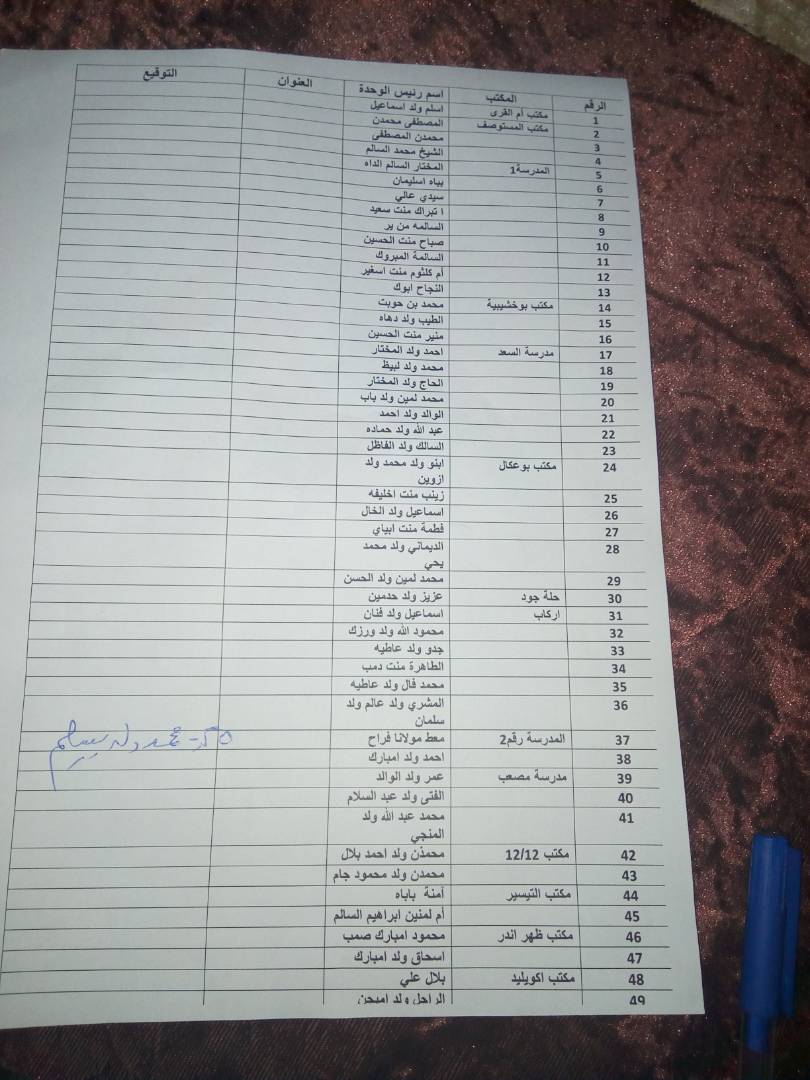 الرقم المكتب اسم رئيس الوحدة العنوان التوقيع
1 مكتب أم القرى اسلم ولد اسماعيل
2 مكتب المستوصف المصطفى محمدن
3 محمدن المصطفى
4 الشيخ محمد السالم
5 المدرسة1 المختار السالم الداه
6 بباه اسليمان
7 سيدي عالي
8 ا تبراك منت سعيد
9 السالمه من ير
10 صباح منت الحسين
11 السالمة المبروك
12 أم كلثوم منت اسغير
13 النجاح ابوك
14 مكتب بوخشيبية محمد بن حوبت
15 الطيب ولد دهاه
16 منير منت الحسين
17 مدرسة السعد احمد ولد المختار
18 محمد ولد لبيظ
19 الحاج ولد المختار
20 محمد لمين ولد باب
21 الوالد ولد احمد
22 عبد الله ولد حماده
23 السالك ولد الفاظل
24 مكتب بوعكال ابنو ولد محمد ولد
ازوين
25 زينب منت اخليفه
26 اسماعيل ولد الخال
27 فطمة منت ابياي
28 الديماني ولد محمد
يحي
29 محمد لمين ولد الحسن
30 حلة جود عزيز ولد حدمين
31 اركاب اسماعيل ولد فنان
32 محمود الله ولد ورزك
33 جدو ولد عاطيه
34 الطاهرة منت دمب
35 محمد فال ولد عاطيه
36 المشري ولد عالم ولد
سلمان
37 المدرسة رقم2 معط مولانا فراح
38 احمد ولد امبارك
39 مدرسة مصعب عمر ولد الوالد
40 الفتى ولد عبد السلام
41 محمد عبد الله ولد
المنجي
42 مكتب 12/12 محمذن ولد احمد بلال
43 محمدن ولد محمود جام
44 مكتب التيسير أمنة باباه
45 أم لمنين ابراهيم السالم
46 مكتب ظهر اندر محمود امبارك صمب
47 اسحاق ولد امبارك
48 مكتب اكويليد بلال علي
49 الراحل ولد اميجن